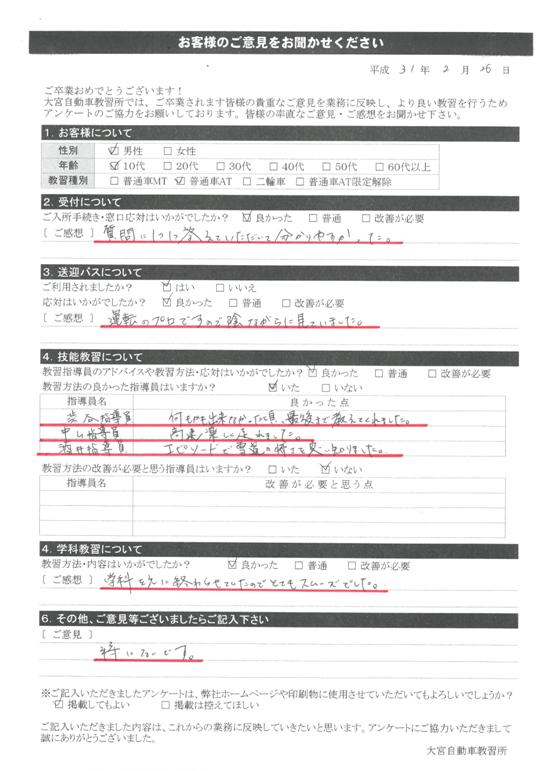 お客様のご意見をお聞かせください
平成 31 年 2 月 26 日
ご卒業おめでとうございます！
大宮自動車教習所では、ご卒業されます皆様の貴重なご意見を業務に反映し、より良い教習を行うため
アンケートのご協力をお願いしております。皆様の率直なご意見・ご感想をお聞かせ下さい。
1. お客様について
性別 ☑男性 □女性
年齢 ☑10代 □20代 □30代 □40代 □50代 □60代以上
教習種別 □普通車MT ☑普通車AT □二輪車 □普通車AT限定解除
2. 受付について
ご入所手続き・窓口応対はいかがでしたか？ ☑良かった □普通 □改善が必要
[ ご感想 ] 質問に1つ1つ答えていただいて分かりやすかった。
3. 送迎バスについて
ご利用されましたか？ ☑はい □いいえ
応対はいかがでしたか？ ☑良かった □普通 □改善が必要
[ ご感想 ] 運転のプロですので陰ながらに見ていました。
4. 技能教習について
教習指導員のアドバイスや教習方法・応対はいかがでしたか？ ☑良かった □普通 □改善が必要
教習方法の良かった指導員はいますか？ ☑いた □いない
指導員名 良かった点
渋谷指導員 何もかも出来なかった頃、最後まで教えてくれました。
中山指導員 楽しく走れました。
酒井指導員 エピソードで雪道の怖さを思い知りました。
教習方法の改善が必要と思う指導員はいますか？ □いた ☑いない
指導員名 改善が必要と思う点
4. 学科教習について
教習方法・内容はいかがでしたか？ ☑良かった □普通 □改善が必要
[ ご感想 ] 学科を先に終わらせていたのでとてもスムーズでした。
6. その他、ご意見等ございましたらご記入下さい
[ ご意見 ]
特にないです。
※ご記入いただきましたアンケートは、弊社ホームページや印刷物に使用させていただいてもよろしいでしょうか？
☑掲載してもよい □掲載は控えてほしい
ご記入いただきました内容は、これからの業務に反映していきたいと思います。アンケートにご協力いただきまして
誠にありがとうございました。
大宮自動車教習所